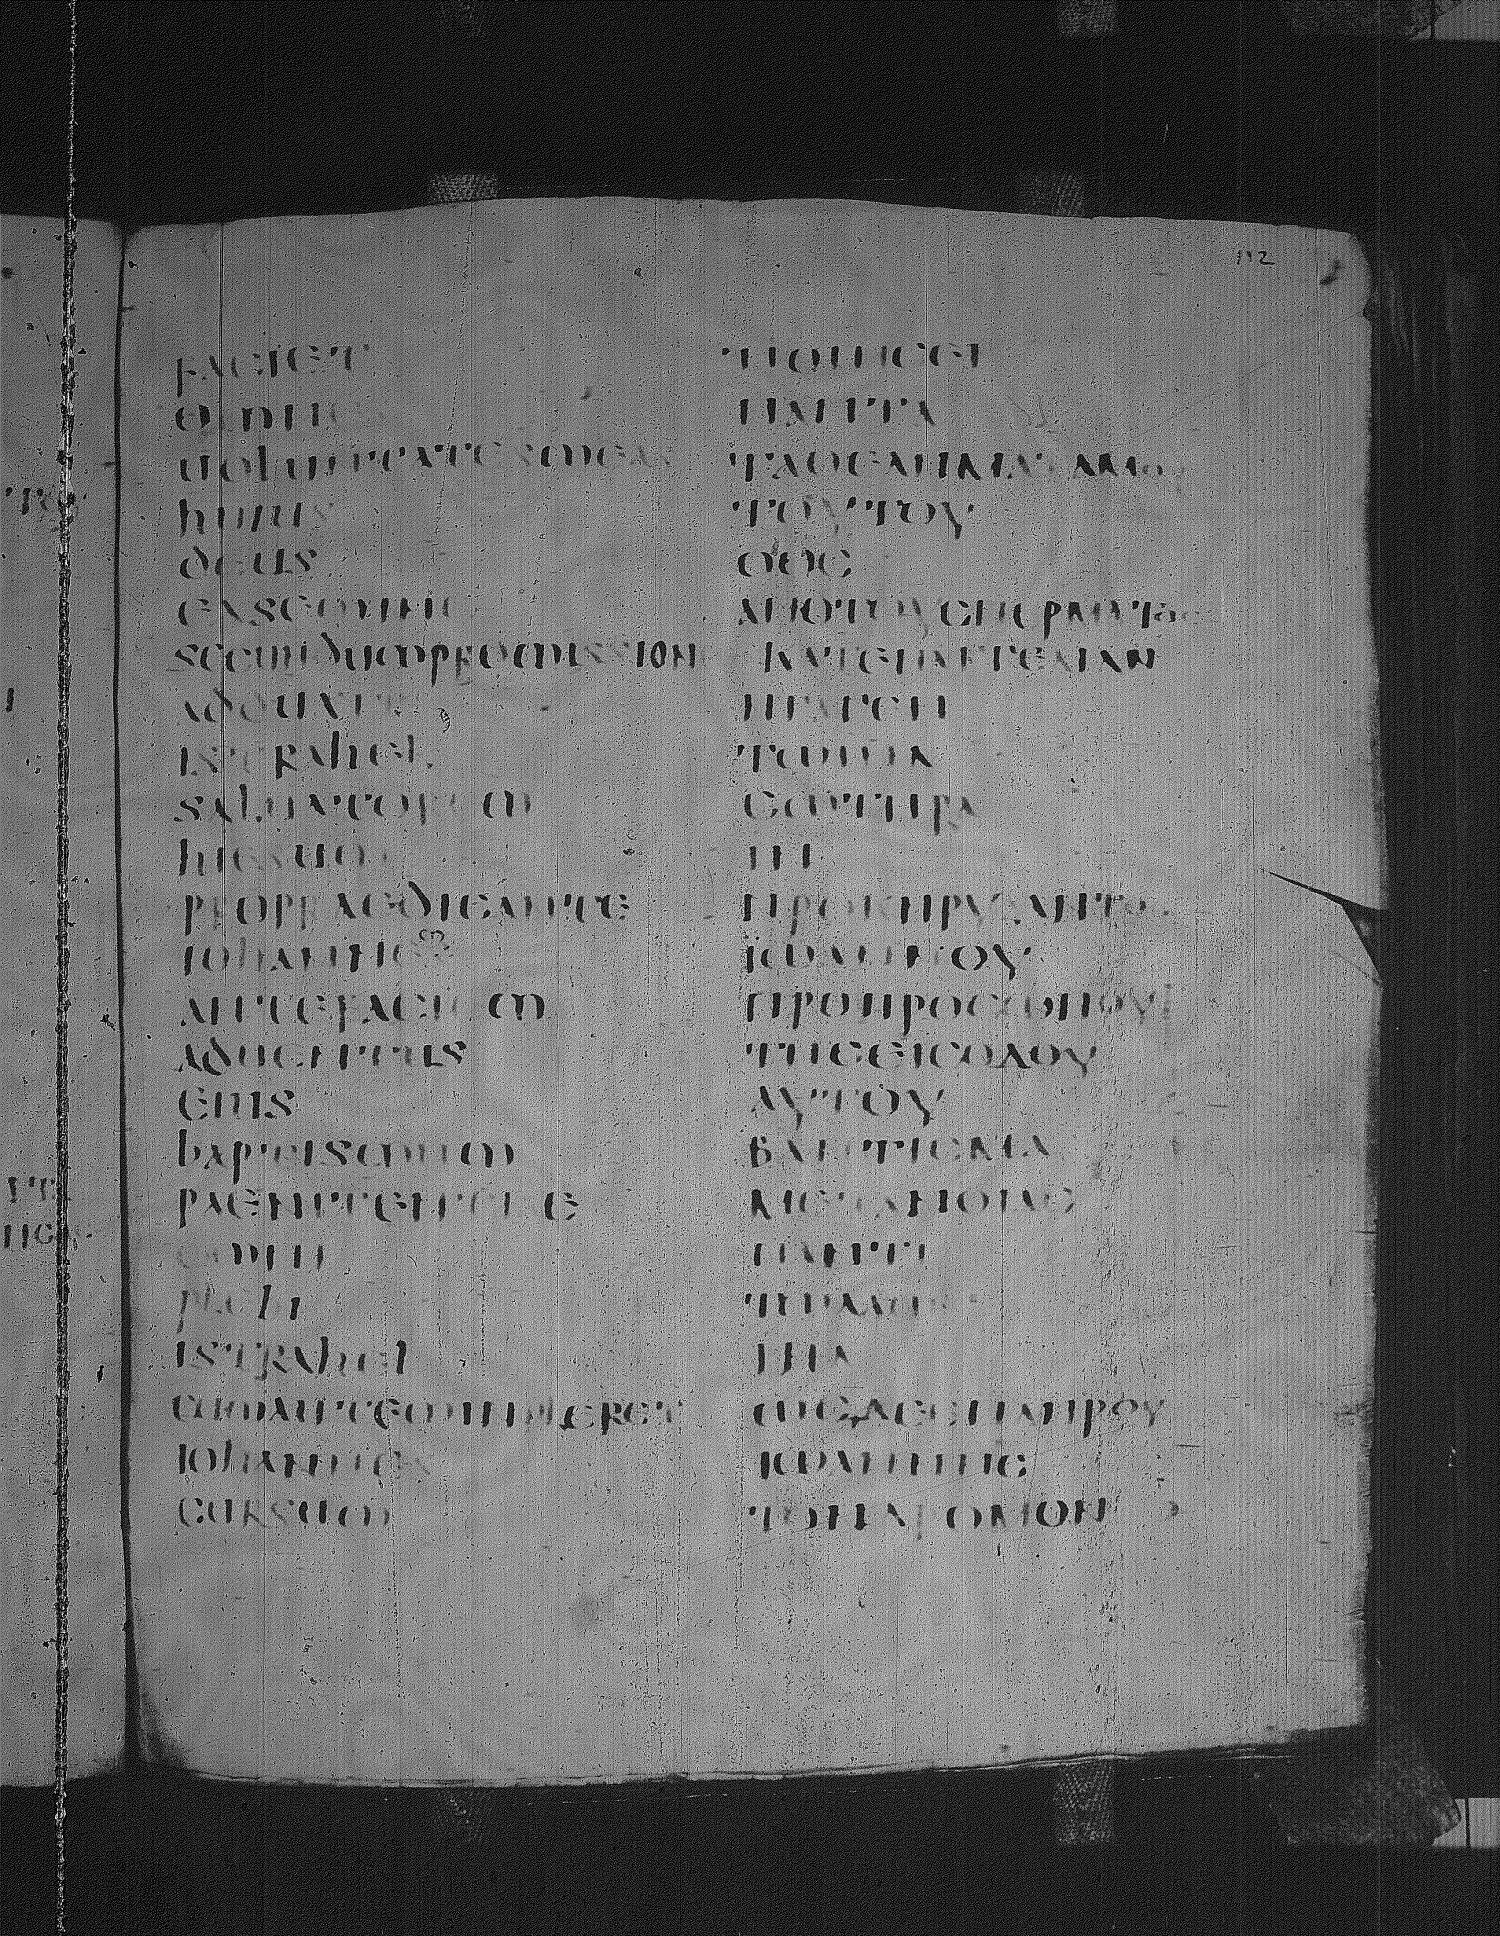 112
faciet
omnes
uoluntates meas
huius
deus
ex semine
secundum promission
adduxit
istrahel
saluatorem
hiesum
praedicante
iohanne
ante faciem
aduentus
eius
baptismum
paenitentiae
omni
plebi
istrahel
cum autem conpleret
iohannes
cursum
ΠΟΙΗϹΕΙ
ΠΑΝΤΑ
ΤΑ ΘΕΛΗΜΑΤΑ ΜΟΥ
ΤΟΥΤΟΥ
Ο ΘϹ
ΑΠΟ ΤΟΥ ϹΠΕΡΜΑΤΟϹ
ΚΑΤ ΕΠΑΓΓΕΛΙΑΝ
ΗΓΑΓΕΝ
ΤΩ ΙΗΛ
ϹΩΤΗΡΑ
ΙΝ
ΠΡΟΚΗΡΥΞΑΝΤΟϹ
ΙΩΑΝΝΟΥ
ΠΡΟ ΠΡΟϹΩΠΟΥ
ΤΗϹ ΕΙϹΟΔΟΥ
ΑΥΤΟΥ
ΒΑΠΤΙϹΜΑ
ΜΕΤΑΝΟΙΑϹ
ΠΑΝΤΙ
ΤΩ ΛΑΩ
ΙΗΛ
ΩϹ ΔΕ ΕΠΛΗΡΟΥ
ΙΩΑΝΝΗϹ
ΤΟΝ ΔΡΟΜΟΝ